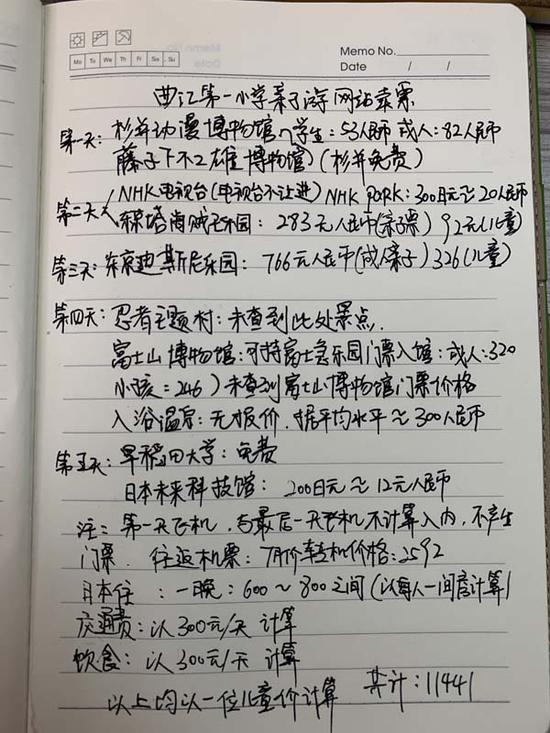 Memo No.
Mo Tu We Th Fr Sa Su
Date / /
曲江第一小学亲子游网站录票
第一天: 杉并动漫博物馆 学生: 53人民币 成人: 82人民币
藤子不二雄博物馆) (杉并免费)
第二天 NHK电视台(电视台不让进) NHK PARK: 300日元≈20人民币
东京塔海贼王乐园: 283元人民币(亲子票) 92元(儿童)
第三天: 东京迪斯尼乐园: 766元人民币(成人亲子) 326(儿童)
第四天: 忍者主题村: 未查到此处景点.
富士山博物馆: 可持富士急乐园门票入馆: 成人: 320
小孩: 246) 未查到富士山博物馆门票价格
入浴温泉: 无报价. 据平均水平≈300人民币
第五天: 早稻田大学: 免费
日本未来科技馆: 200日元≈12元人民币
注: 第一天飞机, 与最后一天飞机不计算入内, 不产生
门票. 往返机票: 7月价转机价格: 2592
日本住 : 一晚: 600~800之间 (以每人一间房计算)
交通费: 以300元/天 计算
饮食: 以300元/天 计算
以上均以一位儿童价计算 共计: 11441